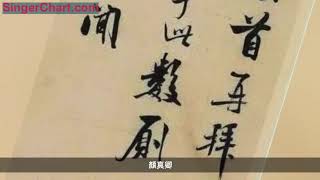 SingerChart.com
首再拜
于此數厠
聞
顏真卿